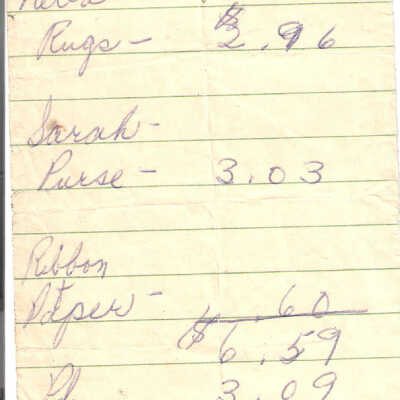 Rugs - $2.96
Sarah -
Purse - 3.03
Ribbon
+
Paper - .60
$6.59
3.09